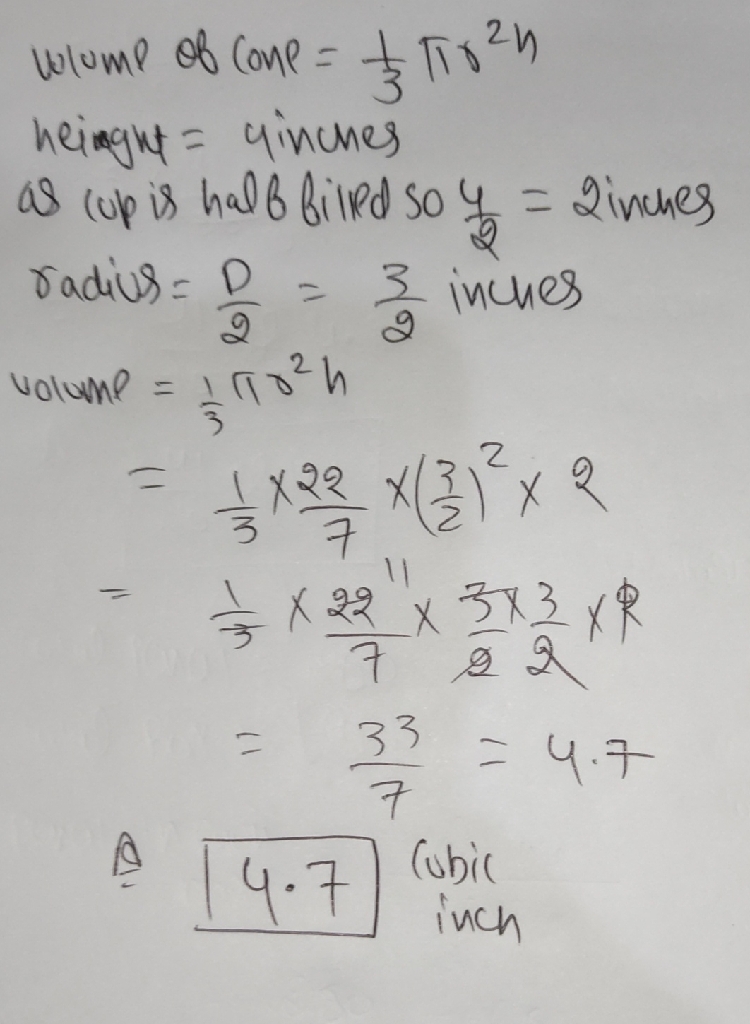 volume of cone = 1/3 πr²h
heinght = 4inches
as cup is half filled so 4/2 = 2inches
radius = D/2 = 3/2 inches
volume = 1/3 πr²h
= 1/3 × 22/7 × (3/2)² × 2
= 1/3 × 22/7 11 × 3×3/2 2 × 2
= 33/7 = 4.7
A 4.7 Cubic inch